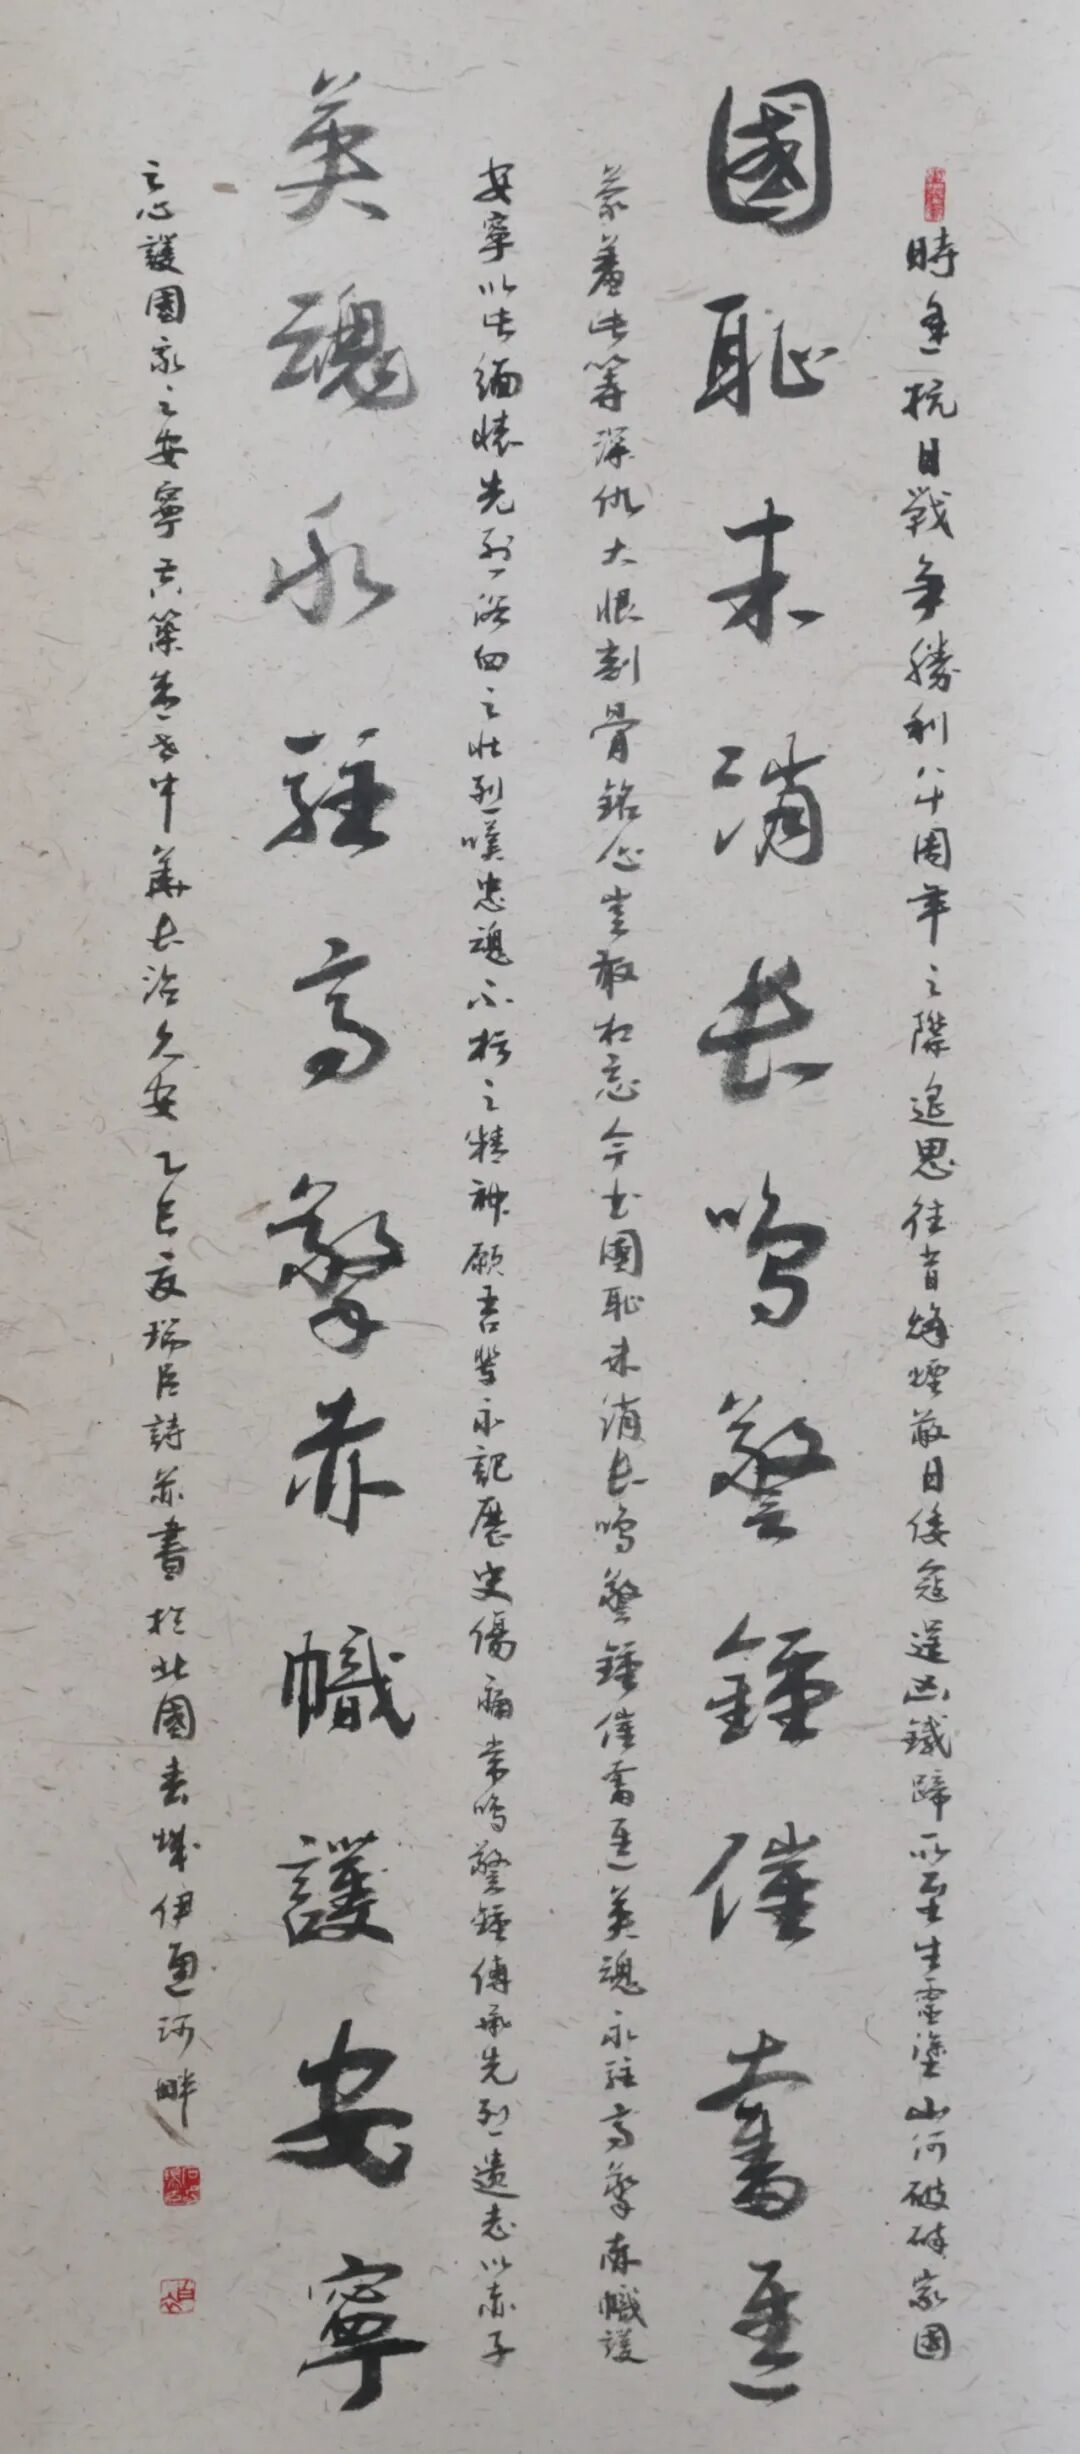 時逢抗日戰争勝利八十周年之際遥思往昔烽煙蔽日倭寇逞凶鐵蹄所至生靈塗山河破碎家国
國恥未消长鳴警鍾催奮進
蒙羞此等深仇大恨刻骨銘心豈敢相忘今书國恥未消长鳴警鍾催奮進英魂永駐高擎赤幟護
安寧以此缅懷先烈浴血之壯烈嘆忠魂不朽之精神願吾輩永記歷史傷痛常鳴警鍾傳承先烈遺志以赤子
英魂永駐高擎赤幟護安寧
之心護國家之安寧共築盛世中華长治久安乙巳夏瑞臣詩并書於北國春城伊通河畔